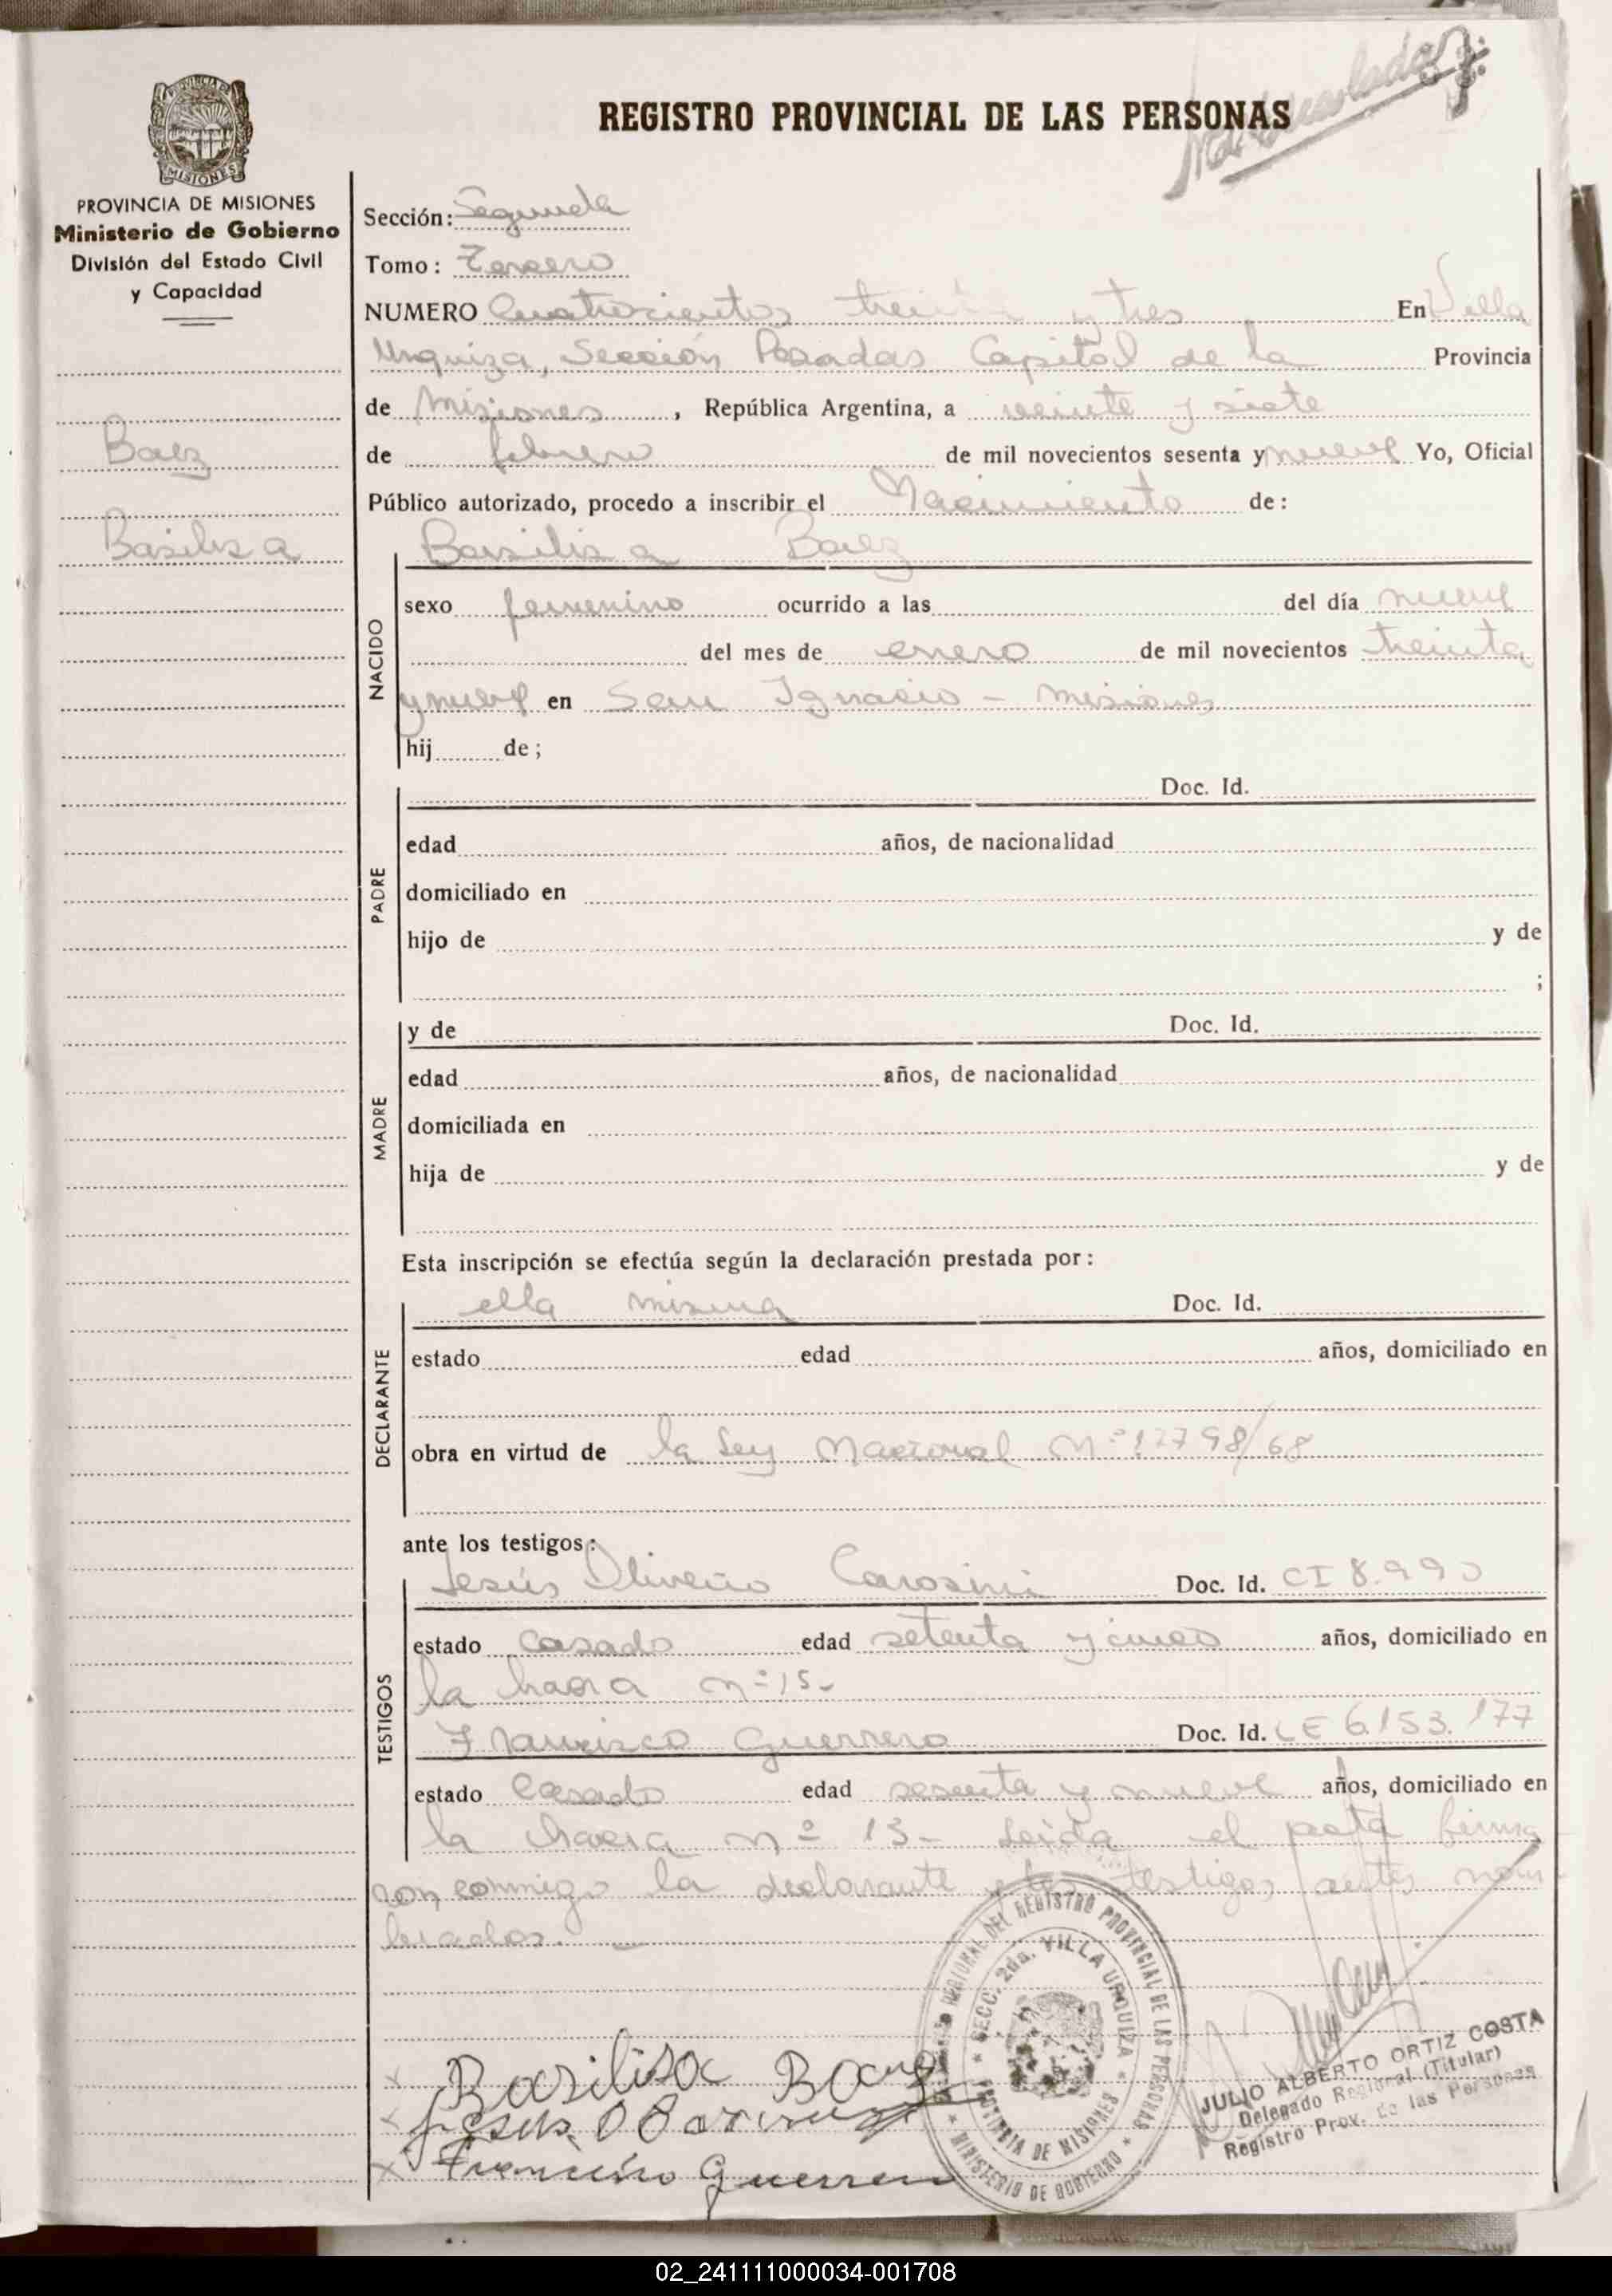 REGISTRO PROVINCIAL DE LAS PERSONAS
PROVINCIA DE MISIONES
Ministerio de Gobierno
División del Estado Civil
y Capacidad
Baez
Basilisa
Sección: Segunda
Tomo: Tercero
NUMERO Cuatrocientos treinta y tres En Villa
Urquiza, Sección Posadas Capital de la Provincia
de Misiones, República Argentina, a veinte y siete
de febrero de mil novecientos sesenta y nueve Yo, Oficial
Público autorizado, procedo a inscribir el Nacimiento de:
Basilisa Baez
NACIDO
sexo femenino ocurrido a las del día nueve
del mes de enero de mil novecientos treinta
y nueve en San Ignacio - Misiones
hij de;
Doc. Id.
PADRE
edad años, de nacionalidad
domiciliado en
hijo de y de
;
y de Doc. Id.
MADRE
edad años, de nacionalidad
domiciliada en
hija de y de
Esta inscripción se efectúa según la declaración prestada por:
ella misma Doc. Id.
DECLARANTE
estado edad años, domiciliado en
obra en virtud de la Ley Nacional Nº 17798/68
ante los testigos:
Jesús Doc. Id. CI 8.990
TESTIGOS
estado casado edad setenta y cinco años, domiciliado en
la chacra nº 15-
Francisco Guerrero Doc. Id. LE 6.153.177
estado Casado edad sesenta y nueve años, domiciliado en
la chacra nº 13- Leida el acta firma
ron conmigo la declarante y los testigos antes nom-
brados.
Basilisa Baez
Jesus
Francisco Guerrero
REGIONAL DEL REGISTRO PROVINCIAL DE LAS PERSONAS
SECC. 2da. VILLA URQUIZA
PROVINCIA DE MISIONES
MINISTERIO DE GOBIERNO
JULIO ALBERTO ORTIZ COSTA
Delegado Regional (Titular)
Registro Prov. de las Personas
02_241111000034-001708